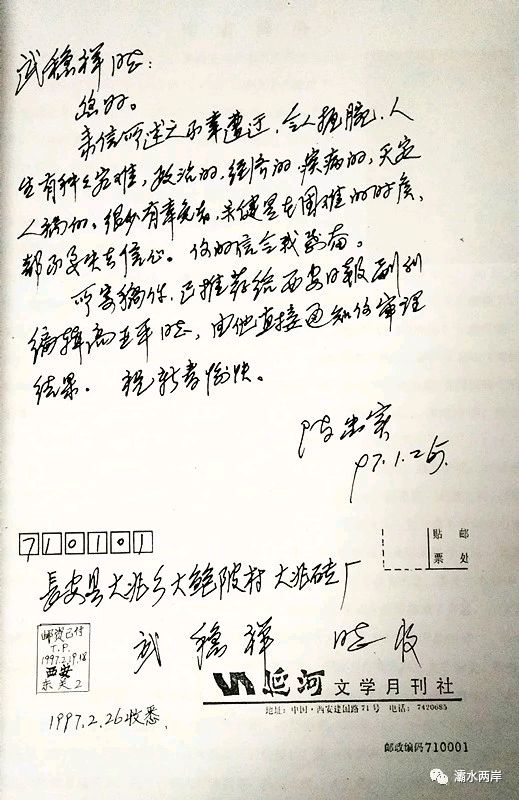 武稳祥同志：
您好。
来信所述之不幸遭遇，令人扼腕。人
生有种种灾难，政治的，经济的，疾病的，天灾
人祸的，很少有幸免者，关键是在困难的时候，
都不要失去信心。你的信令我感动。
所寄稿件，已推荐给西安日报副刊
编辑高亚平同志，由他直接通知你审理
结果。祝新春愉快。
陈忠实
97.1.25.
710101
贴 邮
票 处
长安县大兆乡大鲍陂村大兆砖厂
武稳祥 同志收
邮资已付
T.P.
西安
延河文学月刊社
地址：中国·西安建国路71号 电话：7420685
1997.2.26收悉
邮政编码710001
灞水两岸